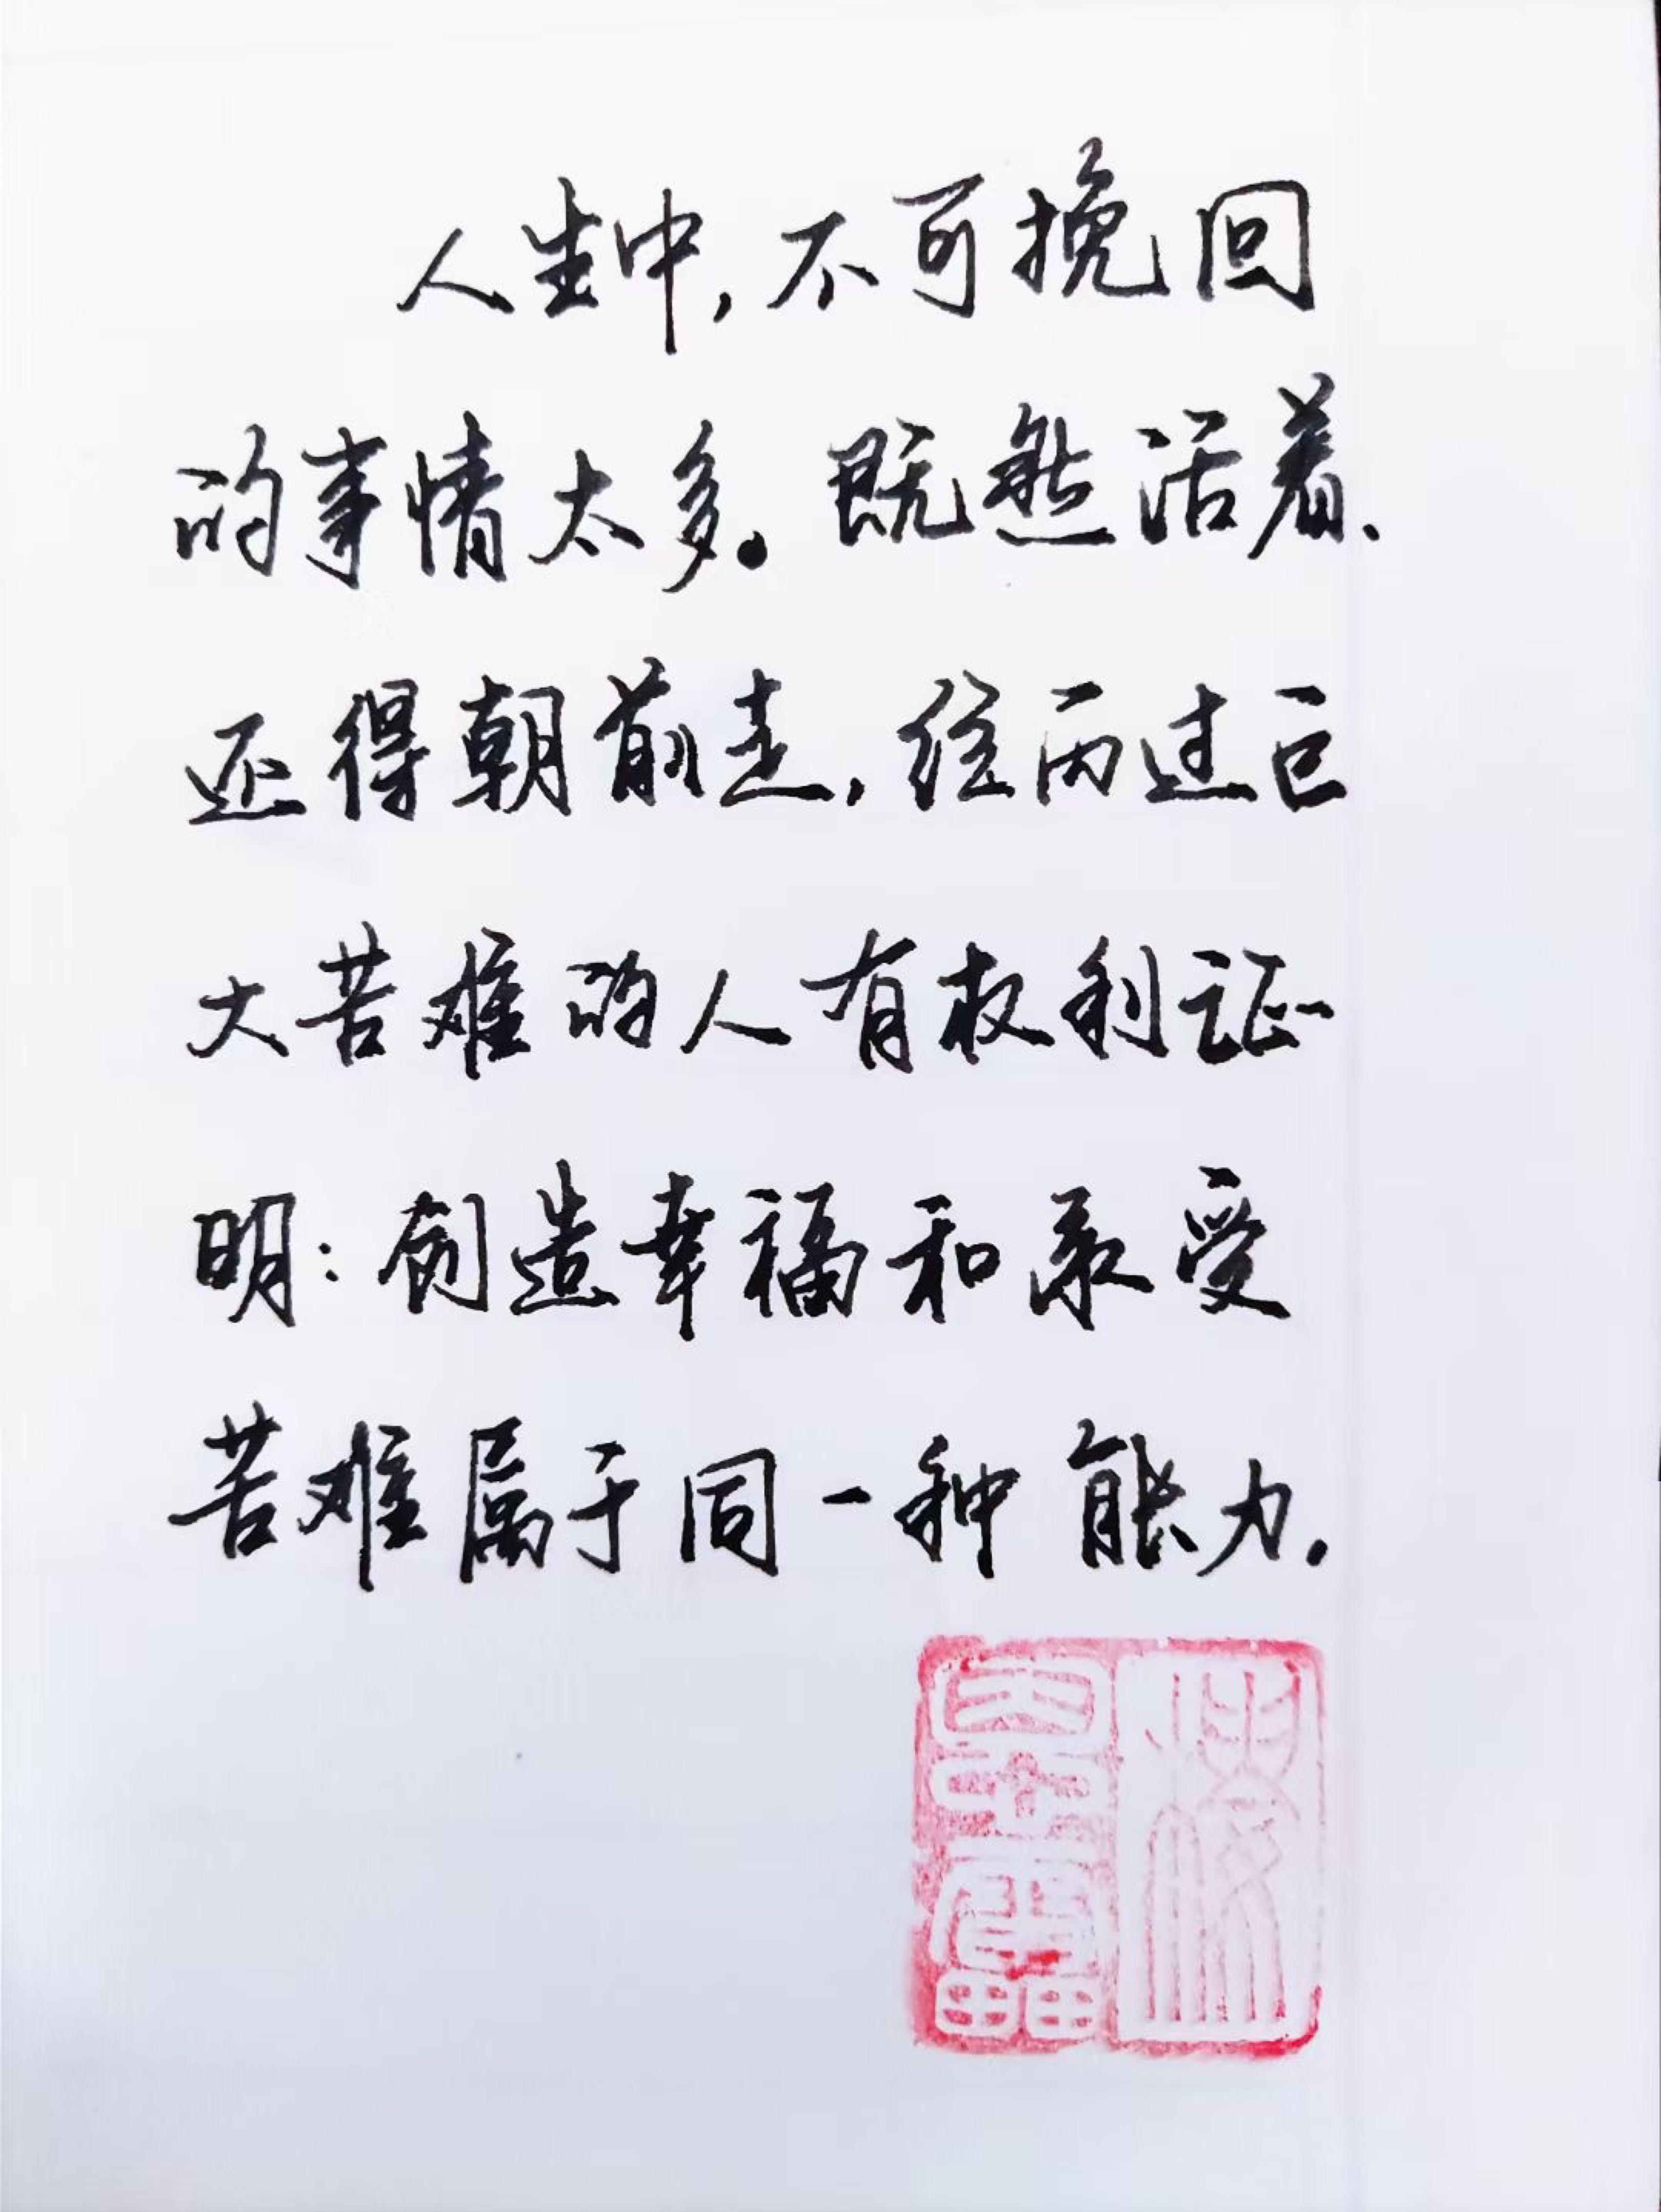 人生中,不可挽回
的事情太多。既然活着、
还得朝前走,经历过巨
大苦难的人有权利证
明:创造幸福和承受
苦难属于同一种能力.